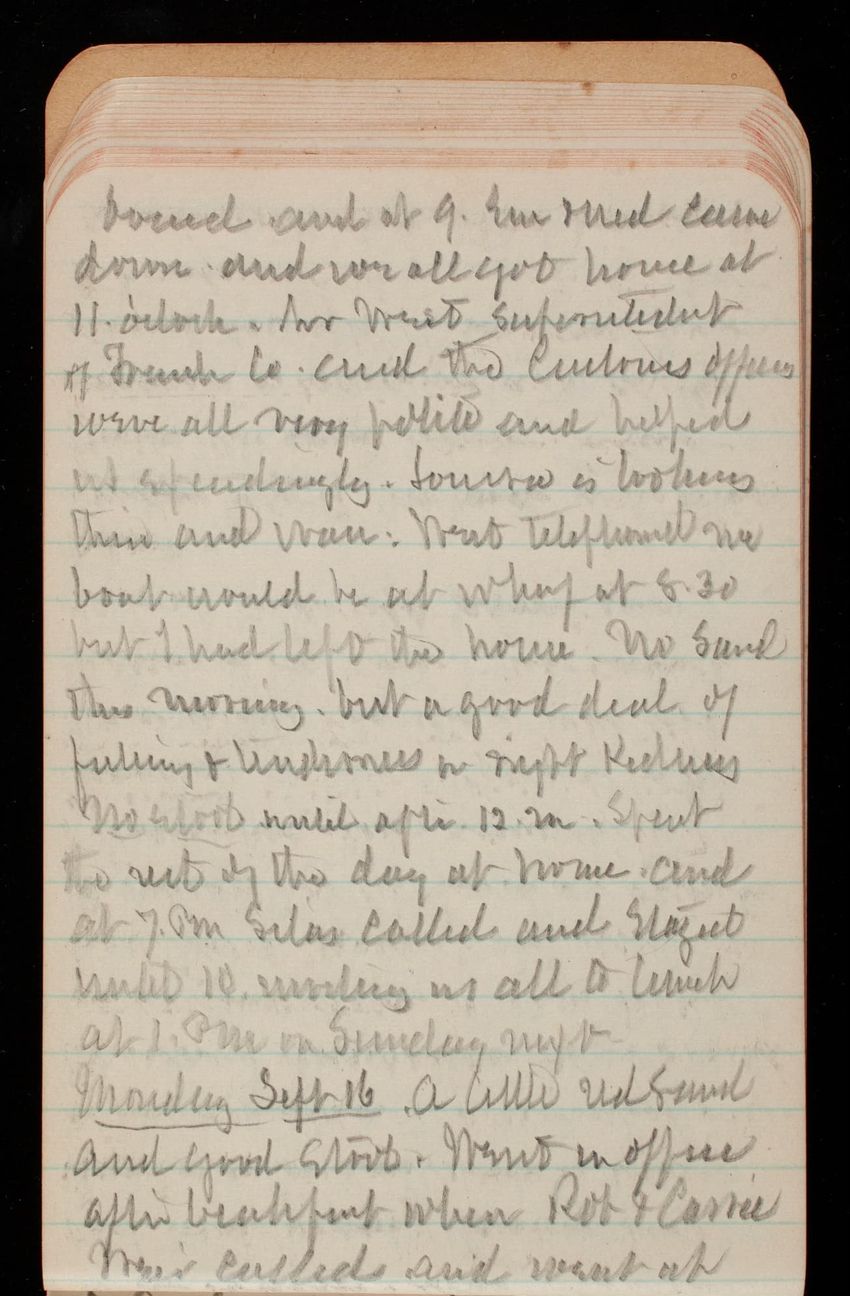 board and at 9. Em & Ned came
down and we all got home at
11. o'clock. Mr West Superintedent
of French Co. and the Customs officers
were all very polite and helped
us exceedingly. Louisa is looking
thin and wan. West telephoned me
boat would be at wharf at 8.30
but I had left the house. No sand
this morning. but a good deal of
fulling & tenderness in right Kidney
No stool until after 12. m. Spent
the rest of the day at home. and
at 7. Pm Silas called and stayed
until 10. inviting us all to lunch
at 1. Pm on Sunday next
Monday Sept 16 . A little red sand
and good stool. Went in office
after breakfast when Rob & Carrie
Weir called and went at